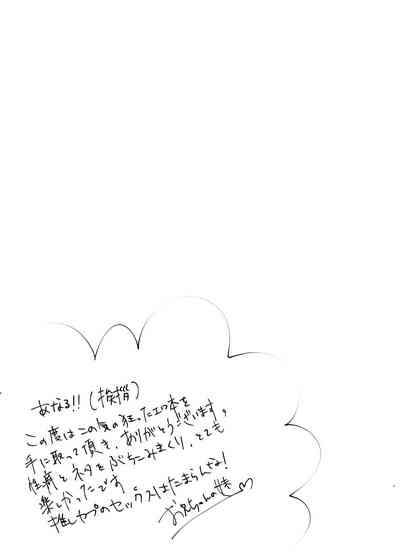 あなる!!(挨拶)
この度はこの気の狂ったエロ本を
手に取って頂き、ありがとうございます。
性癖とネタをぶちこみまくり、とても
楽しかったです
推しカプのセックスはたまらんな!
お兄ちゃんの